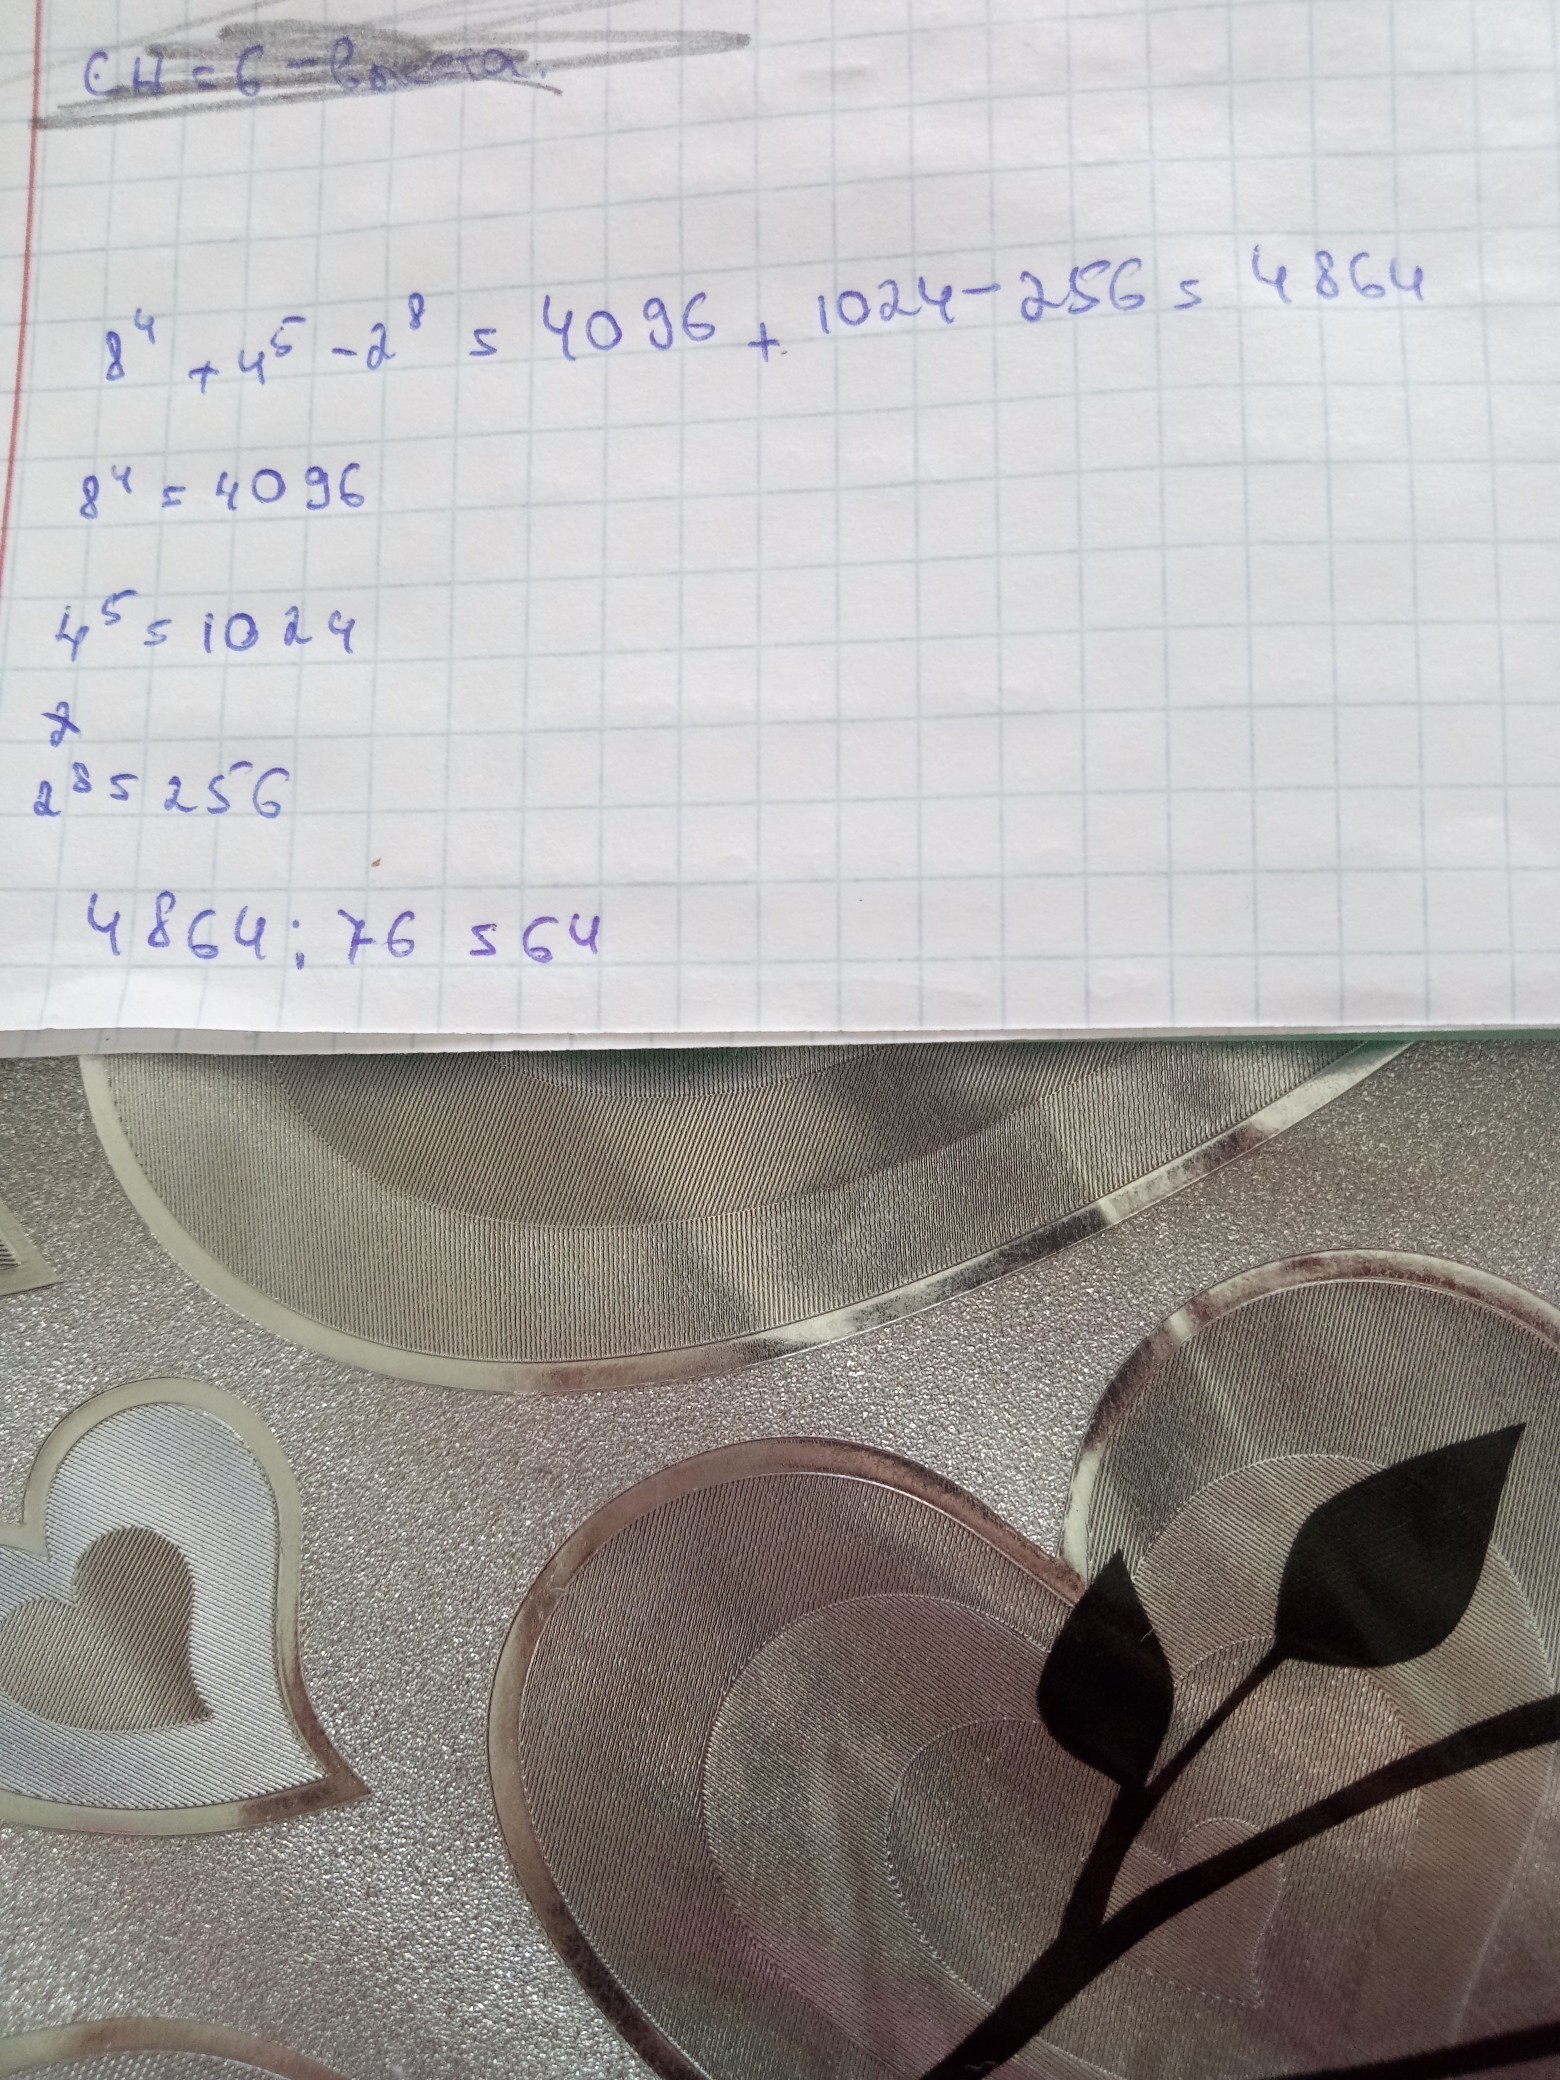 CH = 6 - высота.
8⁴ + 4⁵ - 2⁸ = 4096 + 1024 - 256 = 4864
8⁴ = 4096
4⁵ = 1024
2⁸ = 256
4864 : 76 = 64